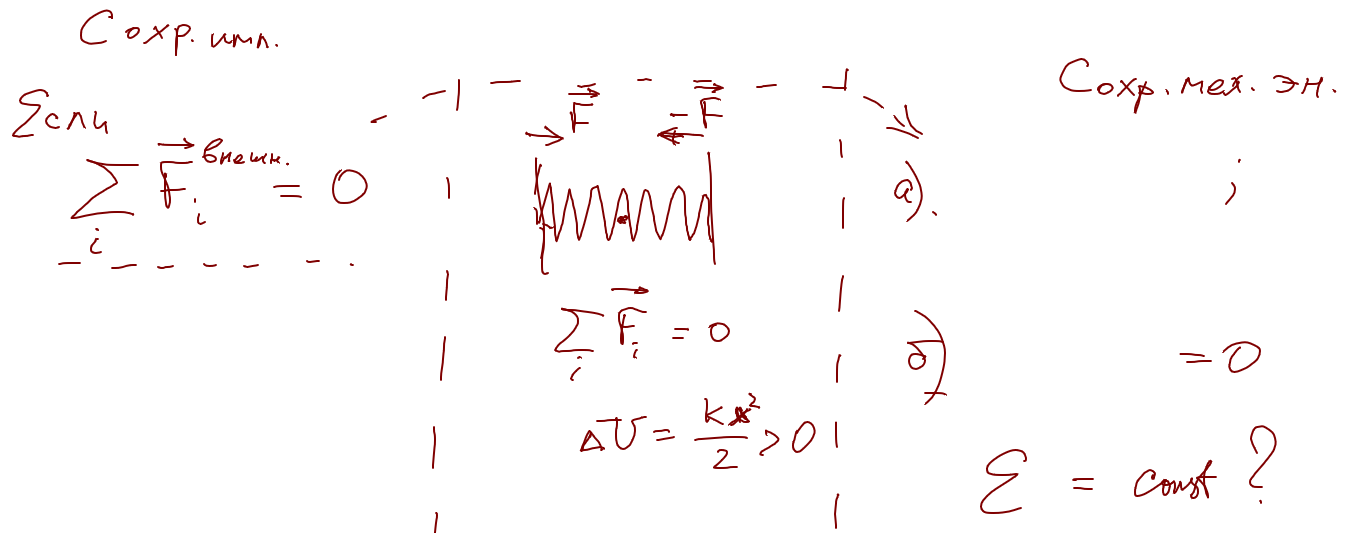 Сохр. имп.
Если
∑_i F⃗_i^внешн. = 0
F⃗ -F⃗
∑_i F⃗_i = 0
ΔU = kx²/2 > 0
Сохр. мех. эн.
а). ;
б) = 0
Ɛ = const ?